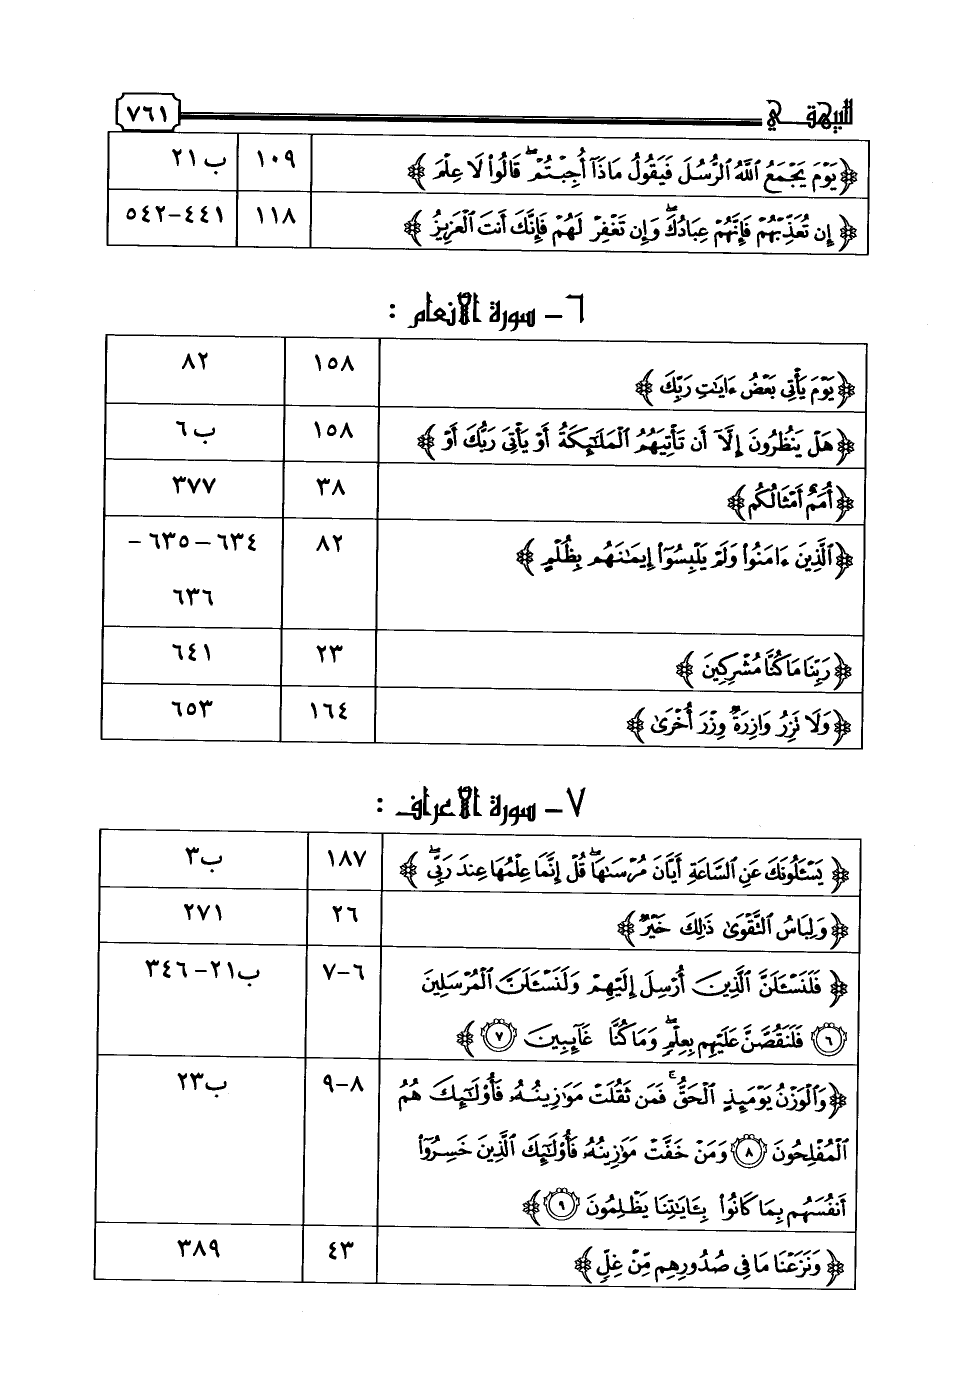 للبيهقي ٧٦١
﴿يَوْمَ يَجْمَعُ اللَّهُ الرُّسُلَ فَيَقُولُ مَاذَا أُجِبْتُمْ قَالُوا لَا عِلْمَ﴾ ١٠٩ ب ٢١
﴿إِن تُعَذِّبْهُمْ فَإِنَّهُمْ عِبَادُكَ وَإِن تَغْفِرْ لَهُمْ فَإِنَّكَ أَنتَ الْعَزِيزُ﴾ ١١٨ ٤٤١-٥٤٢
٦- سورة الأنعام :
﴿يَوْمَ يَأْتِي بَعْضُ ءَايَٰتِ رَبِّكَ﴾ ١٥٨ ٨٢
﴿هَلْ يَنظُرُونَ إِلَّا أَن تَأْتِيَهُمُ الْمَلَٰٓئِكَةُ أَوْ يَأْتِيَ رَبُّكَ أَوْ﴾ ١٥٨ ب ٦
﴿أُمَمٌ أَمْثَالُكُم﴾ ٣٨ ٣٧٧
﴿الَّذِينَ ءَامَنُوا وَلَمْ يَلْبِسُوا إِيمَٰنَهُم بِظُلْمٍ﴾ ٨٢ ٦٣٤-٦٣٥-
٦٣٦
﴿رَبِّنَا مَا كُنَّا مُشْرِكِينَ﴾ ٢٣ ٦٤١
﴿وَلَا تَزِرُ وَازِرَةٌ وِزْرَ أُخْرَىٰ﴾ ١٦٤ ٦٥٣
٧- سورة الأعراف :
﴿يَسْـَٔلُونَكَ عَنِ السَّاعَةِ أَيَّانَ مُرْسَىٰهَا قُلْ إِنَّمَا عِلْمُهَا عِندَ رَبِّي﴾ ١٨٧ ب٣
﴿وَلِبَاسُ التَّقْوَىٰ ذَٰلِكَ خَيْرٌ﴾ ٢٦ ٢٧١
﴿فَلَنَسْـَٔلَنَّ الَّذِينَ أُرْسِلَ إِلَيْهِمْ وَلَنَسْـَٔلَنَّ الْمُرْسَلِينَ ٦-٧ ب٢١-٣٤٦
٦ فَلَنَقُصَّنَّ عَلَيْهِم بِعِلْمٍ وَمَا كُنَّا غَآئِبِينَ ٧﴾
﴿وَالْوَزْنُ يَوْمَئِذٍ الْحَقُّ فَمَن ثَقُلَتْ مَوَٰزِينُهُۥ فَأُولَٰٓئِكَ هُمُ ٨-٩ ب٢٣
الْمُفْلِحُونَ ٨ وَمَنْ خَفَّتْ مَوَٰزِينُهُۥ فَأُولَٰٓئِكَ الَّذِينَ خَسِرُوا
أَنفُسَهُم بِمَا كَانُوا بِـَٔايَٰتِنَا يَظْلِمُونَ ٩﴾
﴿وَنَزَعْنَا مَا فِي صُدُورِهِم مِّنْ غِلٍّ﴾ ٤٣ ٣٨٩